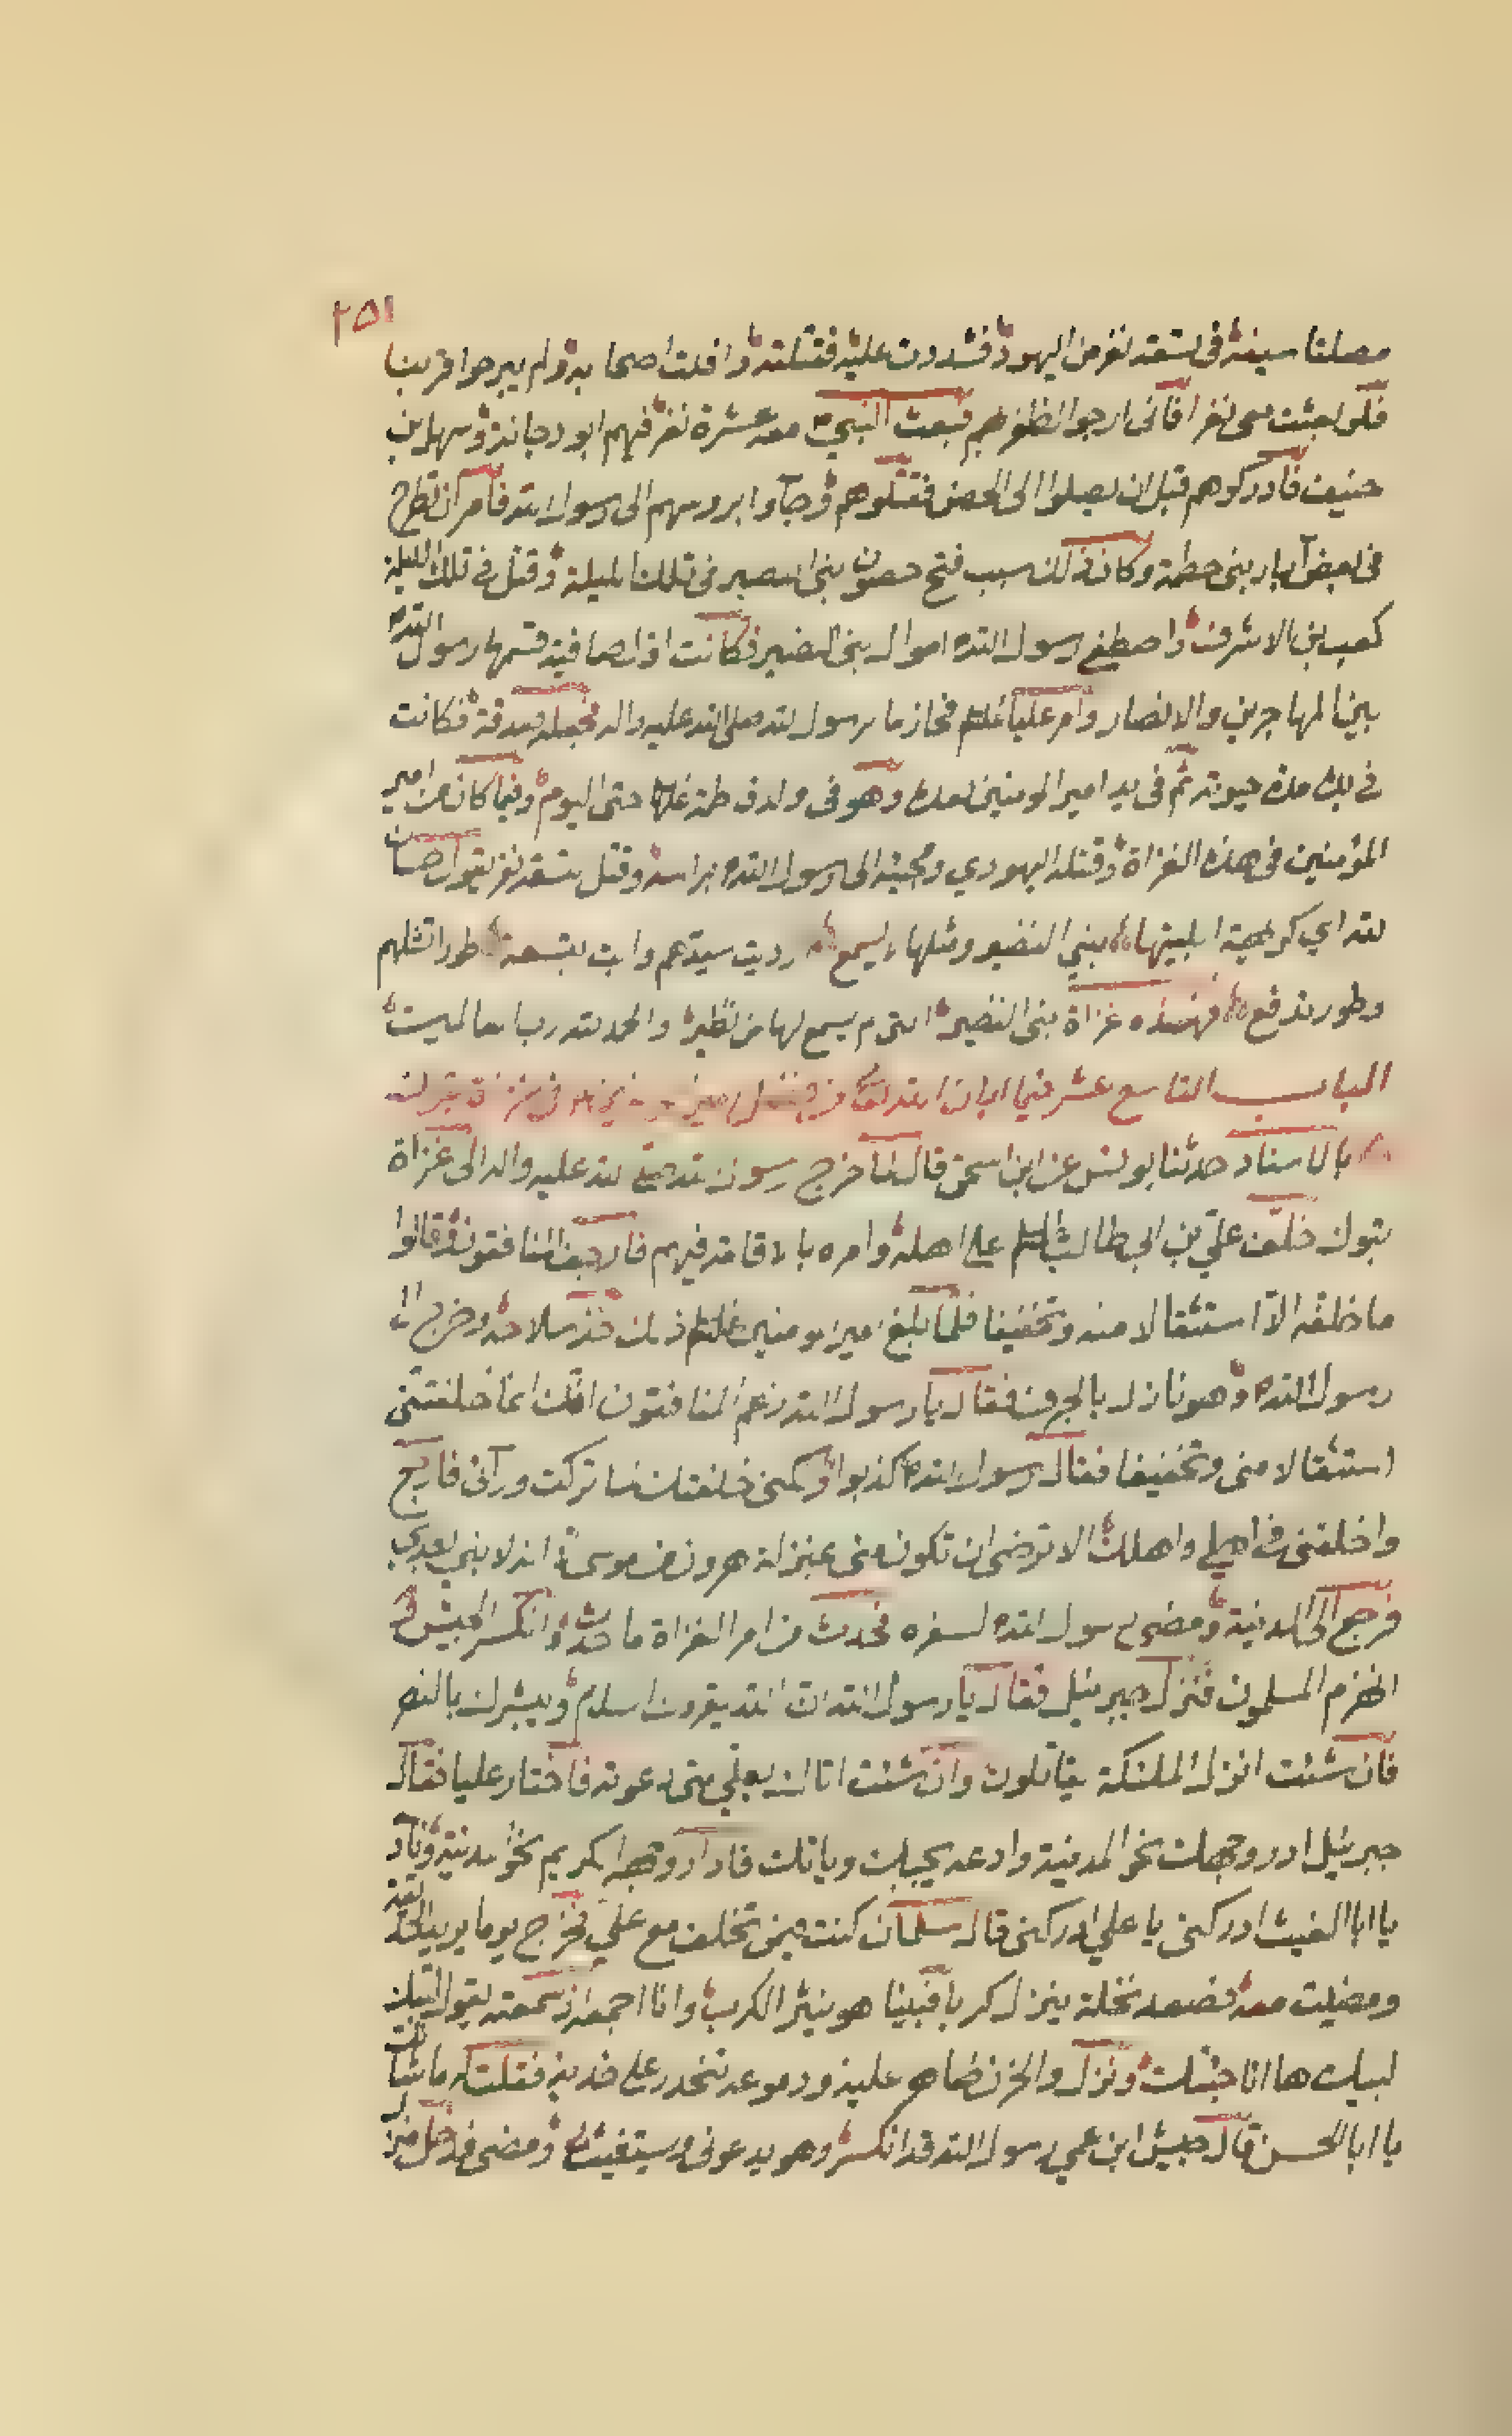 ٢٥١
مصلتا سيفه في تسعة نفر من اليهود فشددت عليه فقتلته وافلت اصحابه ولم يبرحوا قريبا
فلو بعثت معي نفرا فاني ارجو ان اظفر بهم فبعث النبي معه عشرة نفر فيهم ابو دجانة وسهل بن
حنيف فادركوهم قبل ان يصلوا الى الحصن فقتلوهم وجآوا بروسهم الى رسول الله فامر ان تطرح
في بعض آبار بني حطمة وكان ذلك سبب فتح حصون بني النضير في تلك الليلة وقتل في تلك الليلة
كعب بن الاشرف واصطفى رسول الله اموال بني النضير فكانت اول صافية قسمها رسول الله
بين المهاجرين والانصار وامر عليا فحاز ما لرسول الله صلى الله عليه واله فجعله صدقة فكانت
في يده مدة حيوته ثم في يد امير المومنين بعده وهو في ولد فاطمة حتى اليوم وفيما كان من امير
المؤمنين في هذه الغزاة وقتله اليهودي ومجيئه الى رسول الله براسه وقتل تسعة نفر يقول حسان
لله اي كريهة ابليتها ببني النضير ... رديت سيدهم وابت بتسعة طورا تشلهم
وطورا تدفع فهذه غزاة بني النضير التي لم يسمع لها من نظير والحمد لله رب العالمين
الباب التاسع عشر فيما ابان الله ... من فضل امير المومنين في غزاة تبوك
بالاسناد حدثنا يونس عن ابن اسحق قال لما خرج رسول الله صلى الله عليه واله الى غزاة
تبوك خلف علي بن ابي طالب على اهله وامره بالاقامة فيهم فارجف المنافقون وقالوا
ما خلفه الا استثقالا منه وتخفيفا فلما بلغ امير المومنين ذلك اخذ سلاحه وخرج الى
رسول الله وهو نازل بالجرف فقال يا رسول الله زعم المنافقون انك انما خلفتني
استثقالا مني وتخفيفا فقال رسول الله كذبوا ولكني خلفتك لما تركت ورآئي فارجع
واخلفني في اهلي واهلك الا ترضى ان تكون مني بمنزلة هرون من موسى الا انه لا نبي بعدي
فرجع الى المدينة ومضى رسول الله لسفره فحدث من امر الغزاة ما حدث وانكسر الجيش و
انهزم المسلمون فنزل جبرئيل فقال يا رسول الله ان الله يقرؤك السلام ويبشرك بالنصر
فان شئت انزل الملئكة يقاتلون وان شئت اتاك بعلي متى دعوته فاختار عليا فقال
جبرئيل ادر وجهك نحو المدينة وادعه يجبك وياتك فادار وجهه الكريم نحو المدينة وناد
يا ابا الغيث ادركني يا علي ادركني قال سلمان كنت فيمن تخلف مع علي فخرج يوما يريد الحديقة
ومضيت معه فصعد نخلة ينزل كربا فبينا هو ينثر الكرب وانا اجمعه اذ سمعته يقول لبيك
لبيك ها انا جئتك ونزل والحزن ظاهر عليه ودموعه تتحدر على خديه فقلت له ما شانك
يا ابا الحسن قال جيش ابن عمي رسول الله قد انكسر وهو يدعوني ويستغيث بي ومضى فدخل منزل